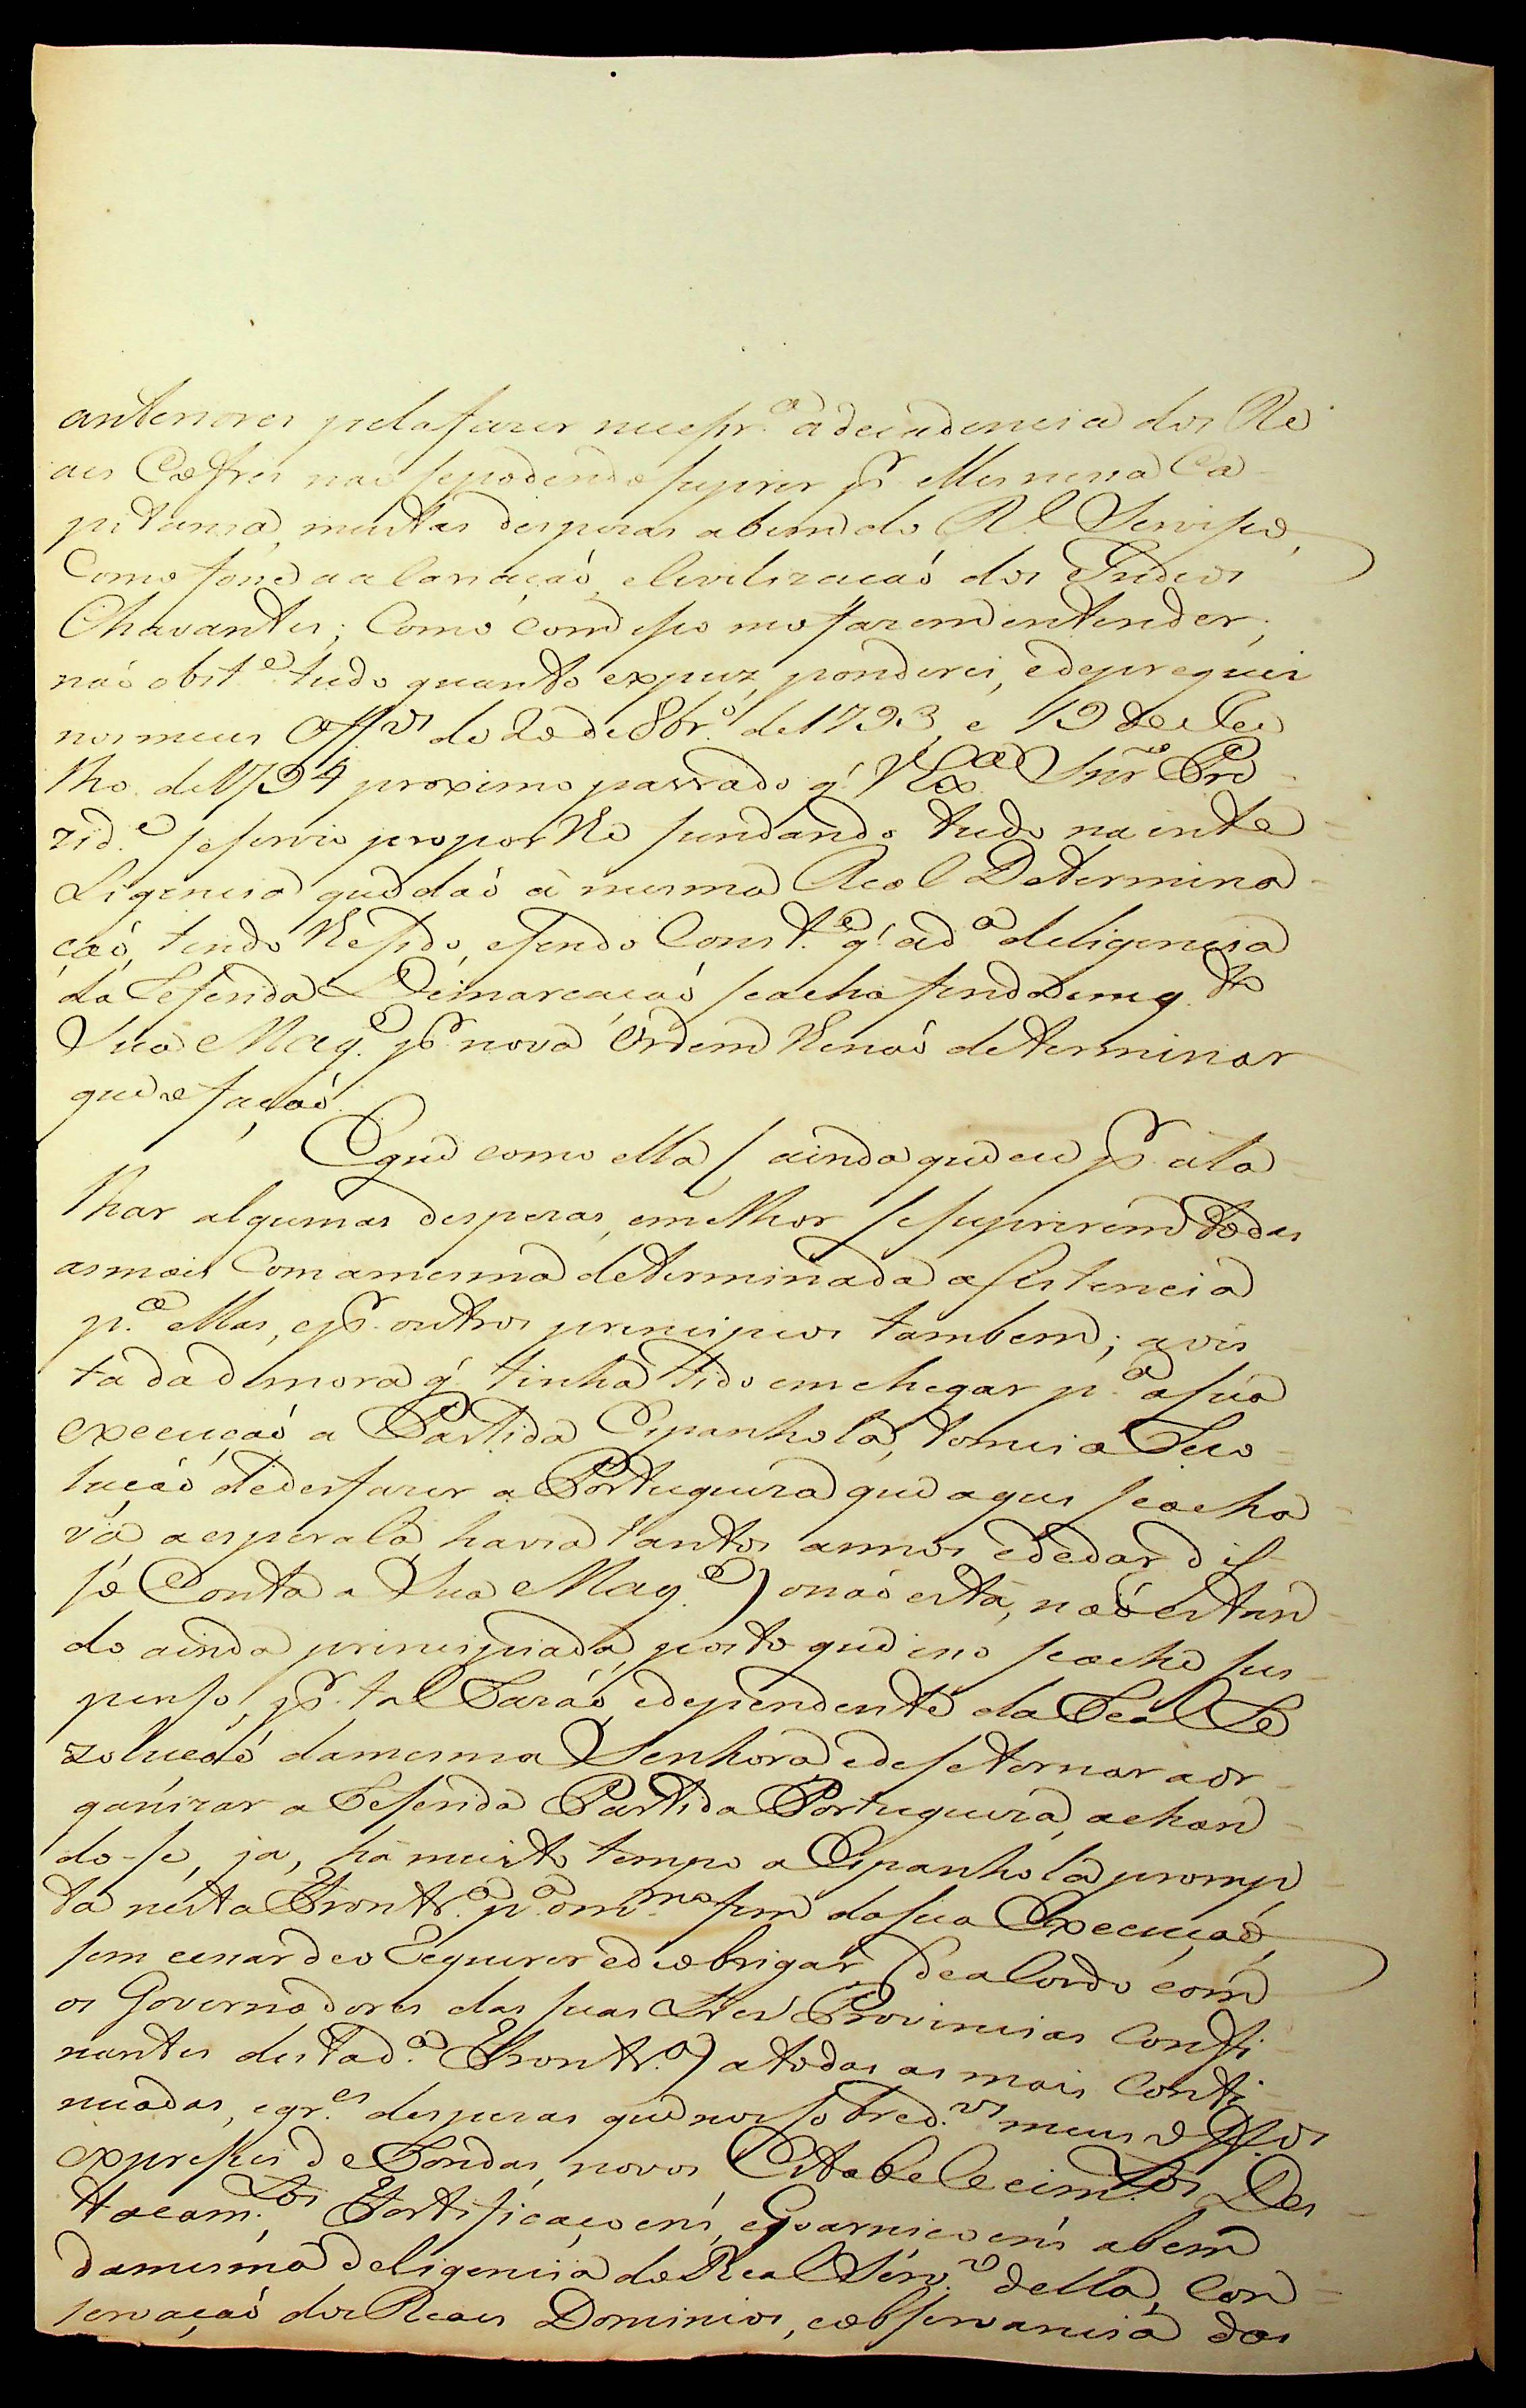 anteriores pela fazer necessr.ª a decadencia dos Re
aes Cofres não se podendo suprir pr. elles nessa Ca-
pitania, muitas despezas a bem do Rl. Serviço,
Como fone a alariação, e Civilização dos Indios
Chavantes; Como com isso me fazem entender;
não obst.e tudo quanto expuz, ponderei, e depreguei
nos meus Off.os de 20 de 8br.o de 1793, e 19 de Ju
lho de 1794 proximo passado q' V. Ex.a Snr.o Pre-
zid.e se servio propor lhe fundando tudo na inte-
ligencia que dão á mesma Real Determina-
ção, tendo lhe sido, e sendo Const.e q' a d.a deligencia
da Referida Demarcação se acha findo emq.to
Sua Mag.e pr. nova Ordem lhe não determinar
que se fação.
E que como ella ( ainda que eu pr. ata-
lhar algumas despezas, e melhor se suprirem todas
as mais Com a mesma determinada assistencia
p.a ellas, e pr. outros principios tambem; a vis
ta da demora q' tinha tido em chegar p.a a sua
execução a Partida Espanhola, tomei a Rezo-
lução de desfazer a Portugueza que aqui se acha-
va a esperala havia tantos annos e de dar dis-
so Conta a Sua Mag.e ) o não está, não estan-
do ainda principiada, posto que isso se ache sus-
penso, pr. tal Razão, e dependente da Real Re
zolução da mesma Senhora, e de se tornar a or-
ganizar a Referida Partida Portugueza, achan-
do-se, ja, há muito tempo a Espanhola promp-
ta nesta Front.ra p.a o m.mo fim da sua Execução,
sem cessar de o Requerer e de obrigar (de acordo com
os Governadores das suas tres Provincias Confi-
nantes desta d.a Front.ra) a todas as mais Conti-
nuadas, e gr.es despezas que nos sobred.os meus Off.os
expressei de Rondas, novos Estabelecim.tos Des-
tacam.tos Fortificaçoens, e Goarniçoens a bem
da mesma deligencia do Real Serv.o della, Con-
servação dos Reaes Dominios, e observancia dos